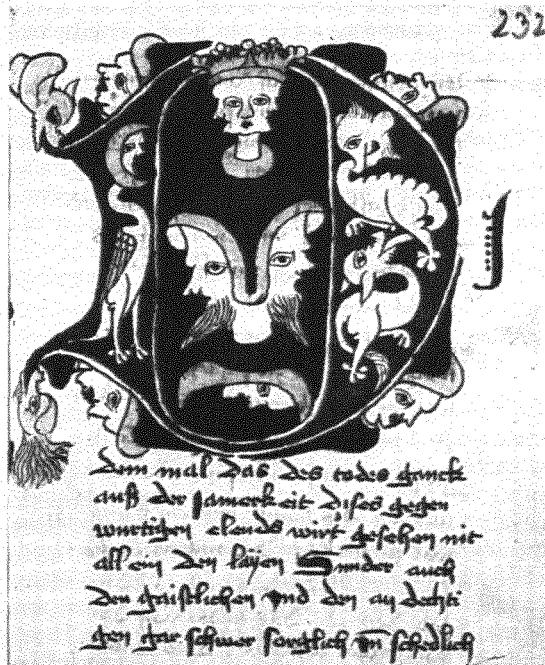 232
Dem mal das des todes ganck
auß der jamerkeit dises gegen
wurtigen elends wirt gesehen nit
allein den laÿen Sunder auch
den gaistlichen vnd den an dechti
gen gar schwer sorglich vn̄ schedlich